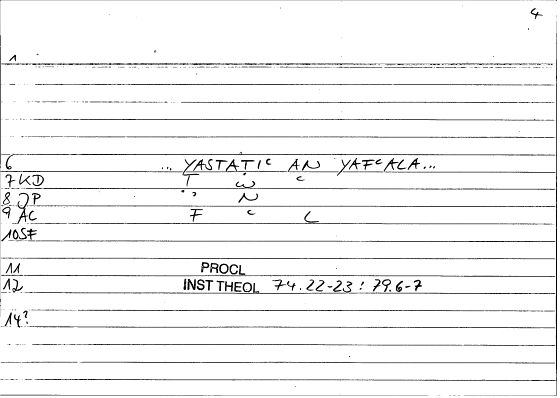 4
1
6 ... YASTATIᶜ AN YAFᶜALA...
7 KD T W ᶜ
8 JP N
9 AC F ᶜ L
10 SF
11 PROCL
12 INST THEOL 74.22-23 : 79.6-7
14?